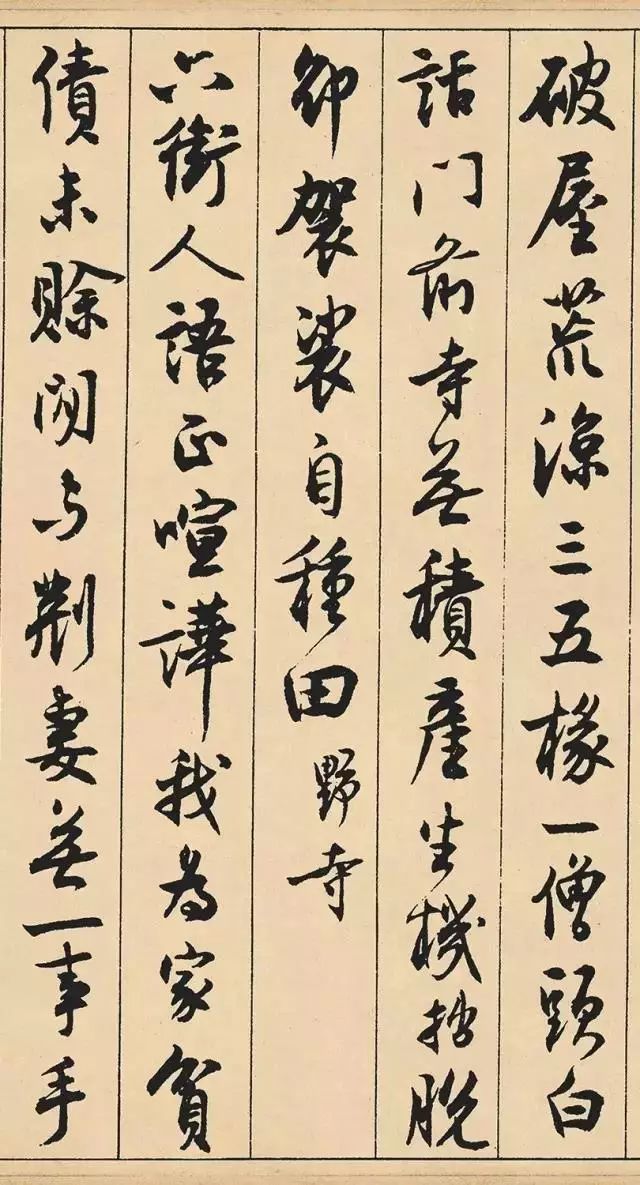 破屋荒涼三五椽一僧頭白
話門前寺無積產生機拙脫
卸袈裟自種田野寺
六街人語正喧譁我為家貧
債未賒閉与荆妻無一事手